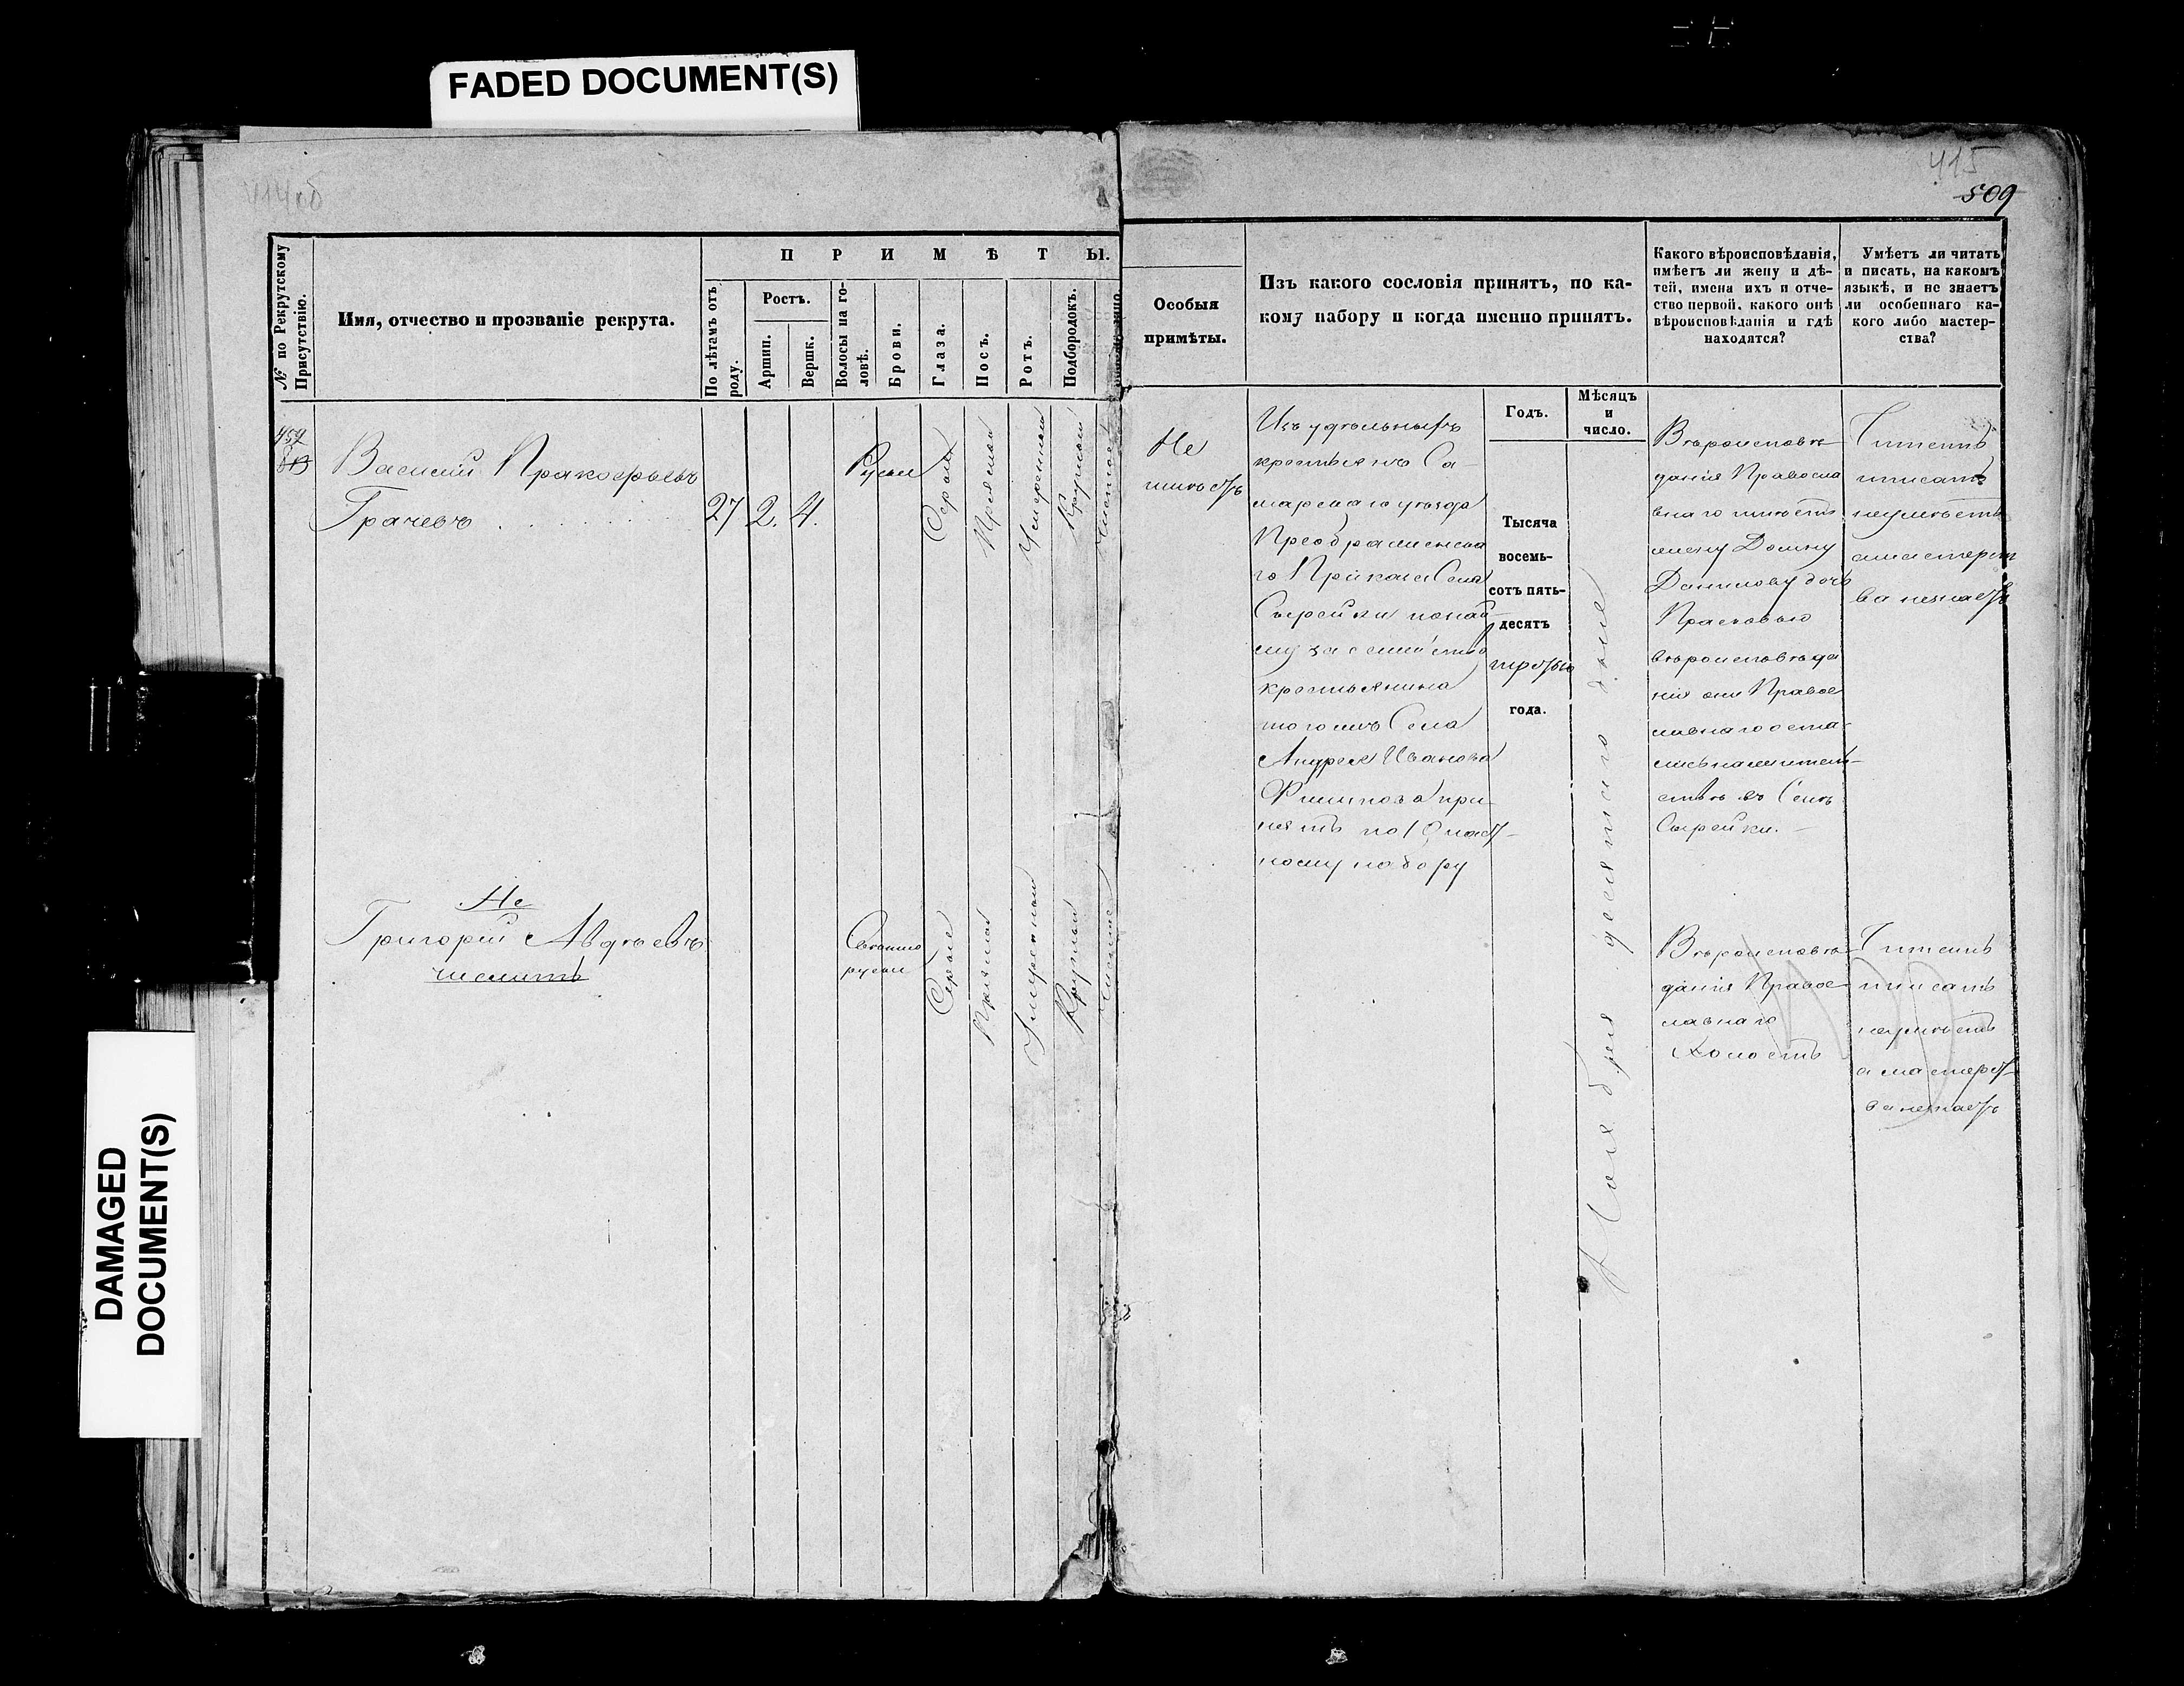 FADED DOCUMENT(S)
DAMAGED
DOCUMENT(S)
415
509
№ по Рекрутскому
Присутствію.
Имя, отчество и прозваніе рекрута.
ПРИМѢТЫ.
По лѣтамъ отъ
роду.
Ростъ.
Аршин.
Вершк.
Волосы на го-
ловѣ.
Брови.
Глаза.
Носъ.
Ротъ.
Подбородокъ.
Особыя
примѣты.
Изъ какого сословія принятъ, по ка-
кому набору и когда именно принятъ.
Какого вѣроисповѣданія,
имѣетъ ли жену и дѣ-
тей, имена ихъ и отче-
ство первой, какого онѣ
вѣроисповѣданія и гдѣ
находятся?
Умѣетъ ли читать
и писать, на какомъ
языкѣ, и не знаетъ
ли особеннаго ка-
кого либо мастер-
ства?
Годъ.
Мѣсяцъ
и
число.
459
Василій Пракофьевъ
Грачевъ
27 2. 4.
Русые
Серые
Прямый
Умеренный
Круглый
Чистое
Не
имѣетъ
Изъ удѣльныхъ
крестьянъ Са-
марскаго уѣзда
Преображенска
го Приказа Села
Сырейки понай-
му за семейство
крестьянина
тогожъ Села
Андрея Иванова
Филипова при-
нятъ по 10 част-
ному набору
Тысяча
восемь-
сотъ пять-
десятъ
третью
года.
Ноября десятого дня
Вѣроисповѣ
данія Правосла
внаго имѣетъ
жену Домну
Данилову дочь
Прасковью
вѣроисповѣда
нія они Правос
лавнаго оста-
лись нажитель-
ствѣ въ Селѣ
Сырейки.
Читать
писать
неумѣетъ
амастерст
ва незнаетъ
Не
Григорій Авдѣевъ
числить
Светло
русые
Серые
Прямый
Умеренный
Круглый
Чистое
Вѣроисповѣ
данія Правос
лавнаго
Холостъ
Читать
писать
неумѣетъ
а мастерст-
ва незнаетъ